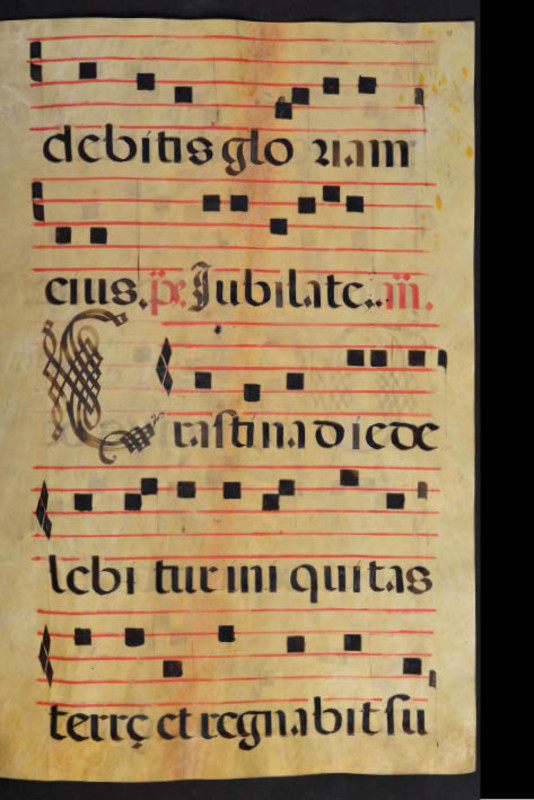 debitis glo riam
eius. p̃s. Jubilate.. añ.
Crastina die de
lebi tur ini quitas
terrę et regnabit su